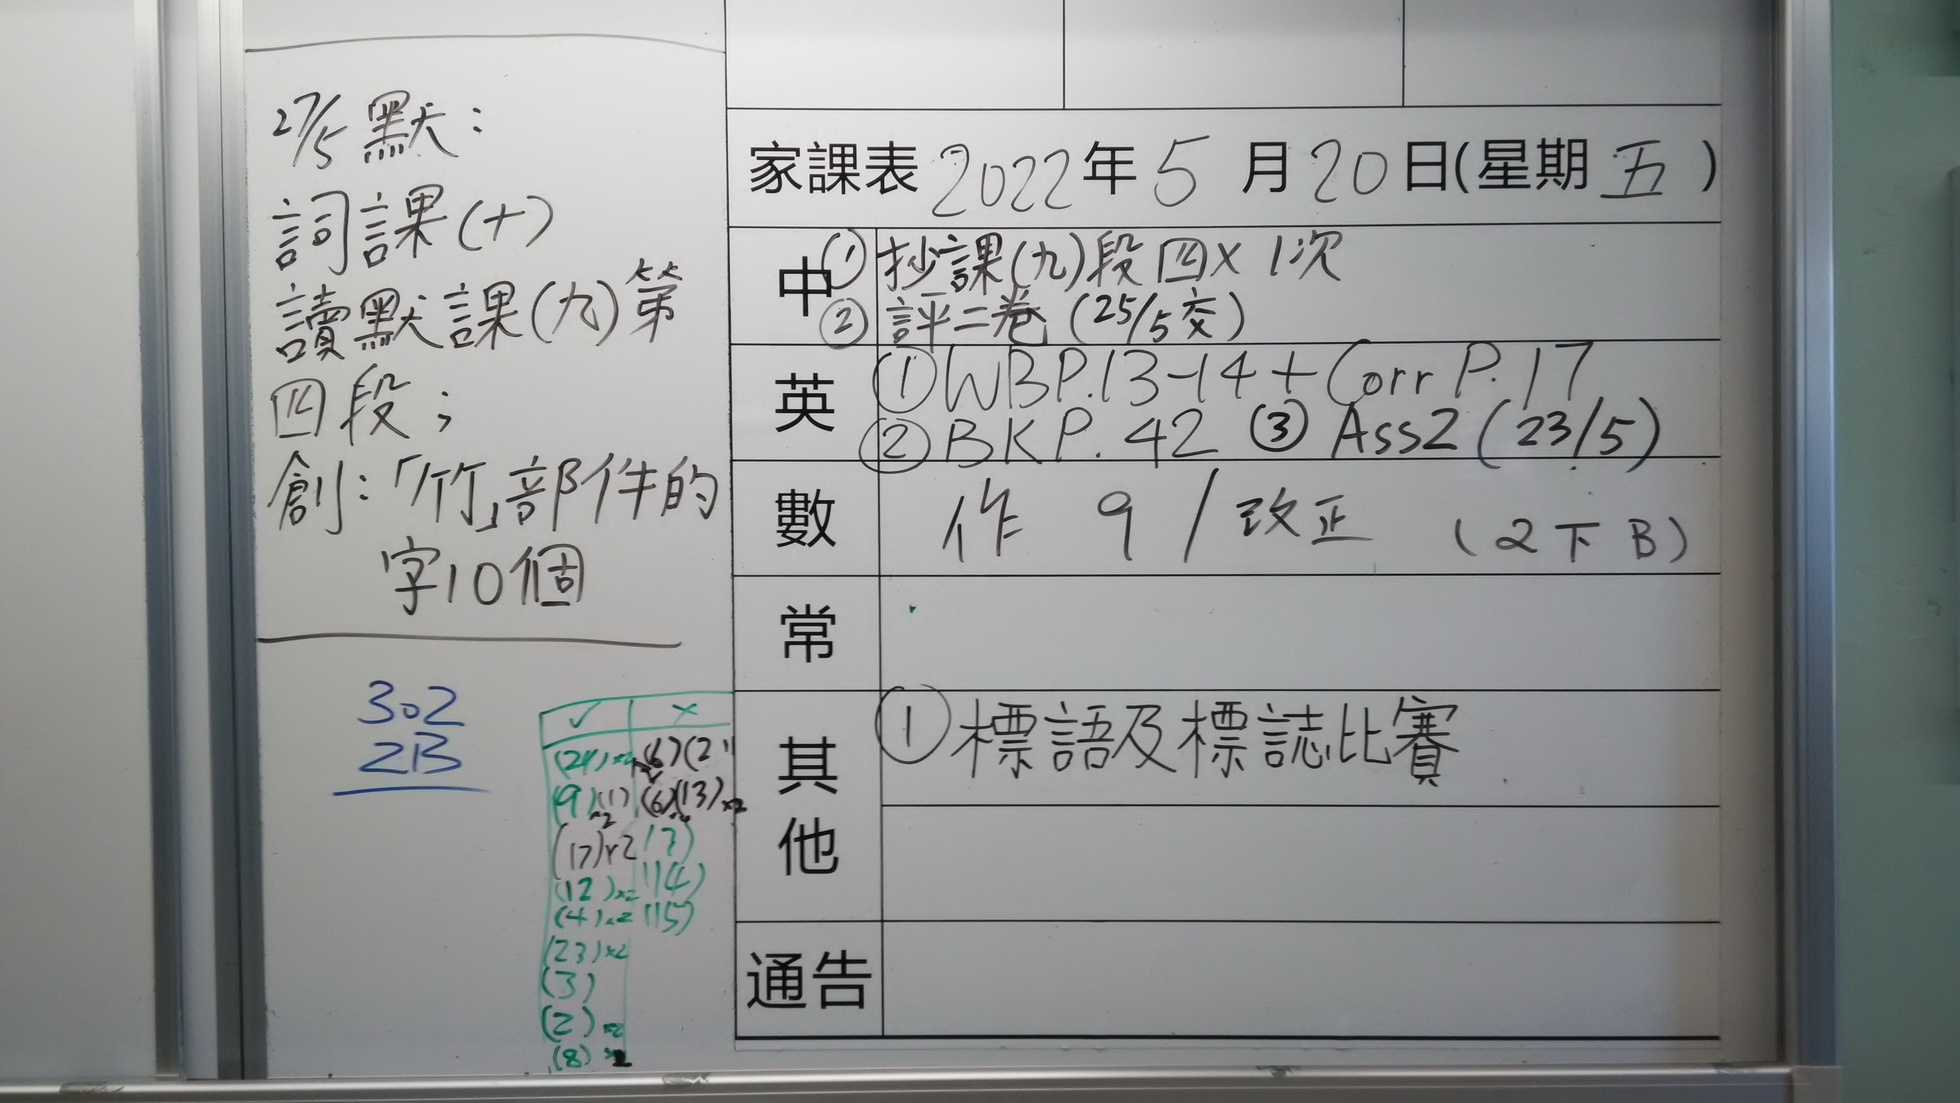 27/5 默：
詞課(十)
讀默課(九)第
四段；
創：「竹」部件的
字10個
302
2B
✓ ×
(24)×2 (6)(2
(9)(1) (6)(13)×2
×2
(17)×2 17)
(12)×2 114)
(4)×2 115)
(23)×2
(3)
(2)×2
(8)
家課表 2022年 5月20日(星期五)
中 ① 抄課(九)段四×1次
② 評二卷 (25/5交)
英 ① WBP.13-14+Corr P.17
② BK P.42 ③ Ass2 (23/5)
數 作 9 / 改正 (2下B)
常
其他 ① 標語及標誌比賽
通告